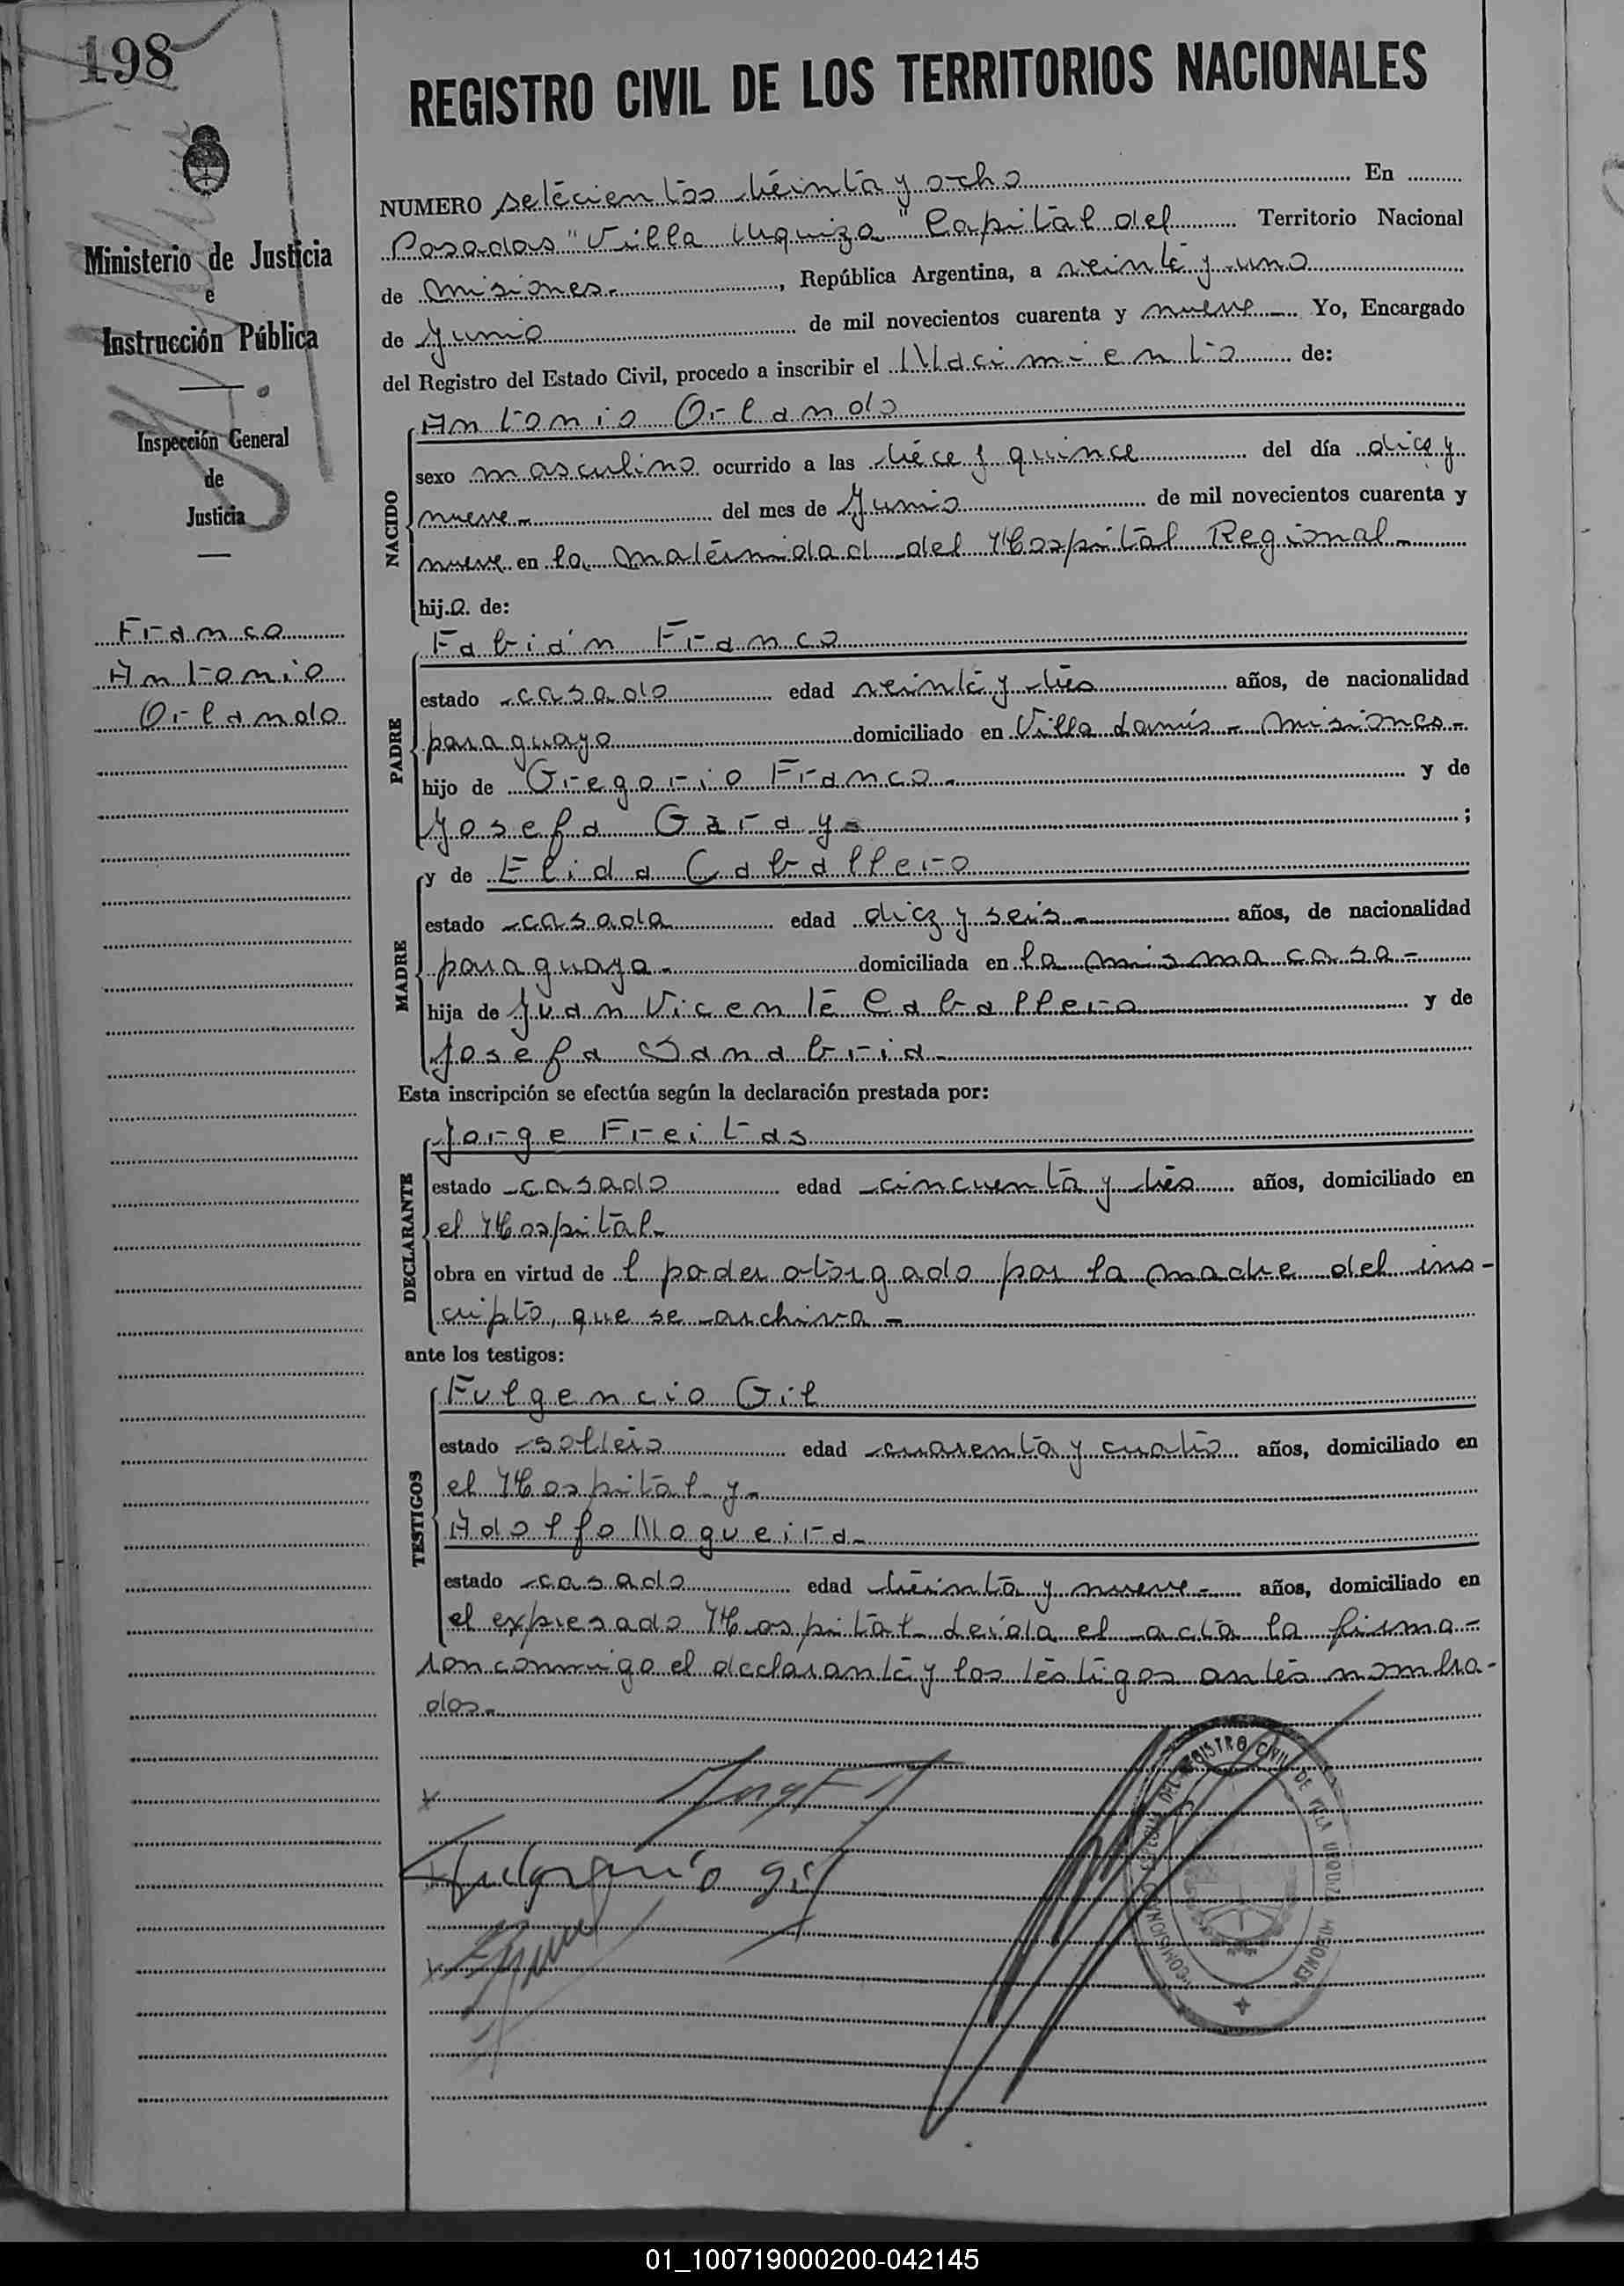 198
REGISTRO CIVIL DE LOS TERRITORIOS NACIONALES
Ministerio de Justicia
e
Instrucción Pública
Inspección General
de
Justicia
Franco
Antonio
Orlando
NUMERO setecientos treinta y ocho En
Posadas "Villa Urquiza" Capital del Territorio Nacional
de Misiones.-, República Argentina, a veinte y uno
de Junio de mil novecientos cuarenta y nueve Yo, Encargado
del Registro del Estado Civil, procedo a inscribir el Nacimiento de:
NACIDO
Antonio Orlando
sexo masculino ocurrido a las trece y quince del día diez y
nueve- del mes de Junio de mil novecientos cuarenta y
nueve en la Maternidad del Hospital Regional-
hijo de:
PADRE
Fabián Franco
estado casado edad veinte y tres años, de nacionalidad
paraguayo domiciliado en Villa Lanús- Misiones-
hijo de Gregorio Franco- y de
Josefa Garay- ;
MADRE
y de Elida Caballero
estado casada edad diez y seis- años, de nacionalidad
paraguaya- domiciliada en la misma casa-
hija de Juan Vicente Caballero y de
Josefa Sanabria-
Esta inscripción se efectúa según la declaración prestada por:
DECLARANTE
Jorge Freitas
estado casado edad cincuenta y tres años, domiciliado en
el Hospital-
obra en virtud de l poder otorgado por la madre del ins-
cripto, que se archiva-
ante los testigos:
TESTIGOS
Fulgencio Gil
estado soltero edad cuarenta y cuatro años, domiciliado en
el Hospital y-
Adolfo Nogueira-
estado casado edad treinta y nueve- años, domiciliado en
el expresado Hospital- Leída el acta la firma-
ron conmigo el declarante y los testigos antes nombra-
dos-
Fulgencio Gil
COMISION ESPECIAL DEL REGISTRO CIVIL DE VILLA URQUIZA MISIONES
01_100719000200-042145